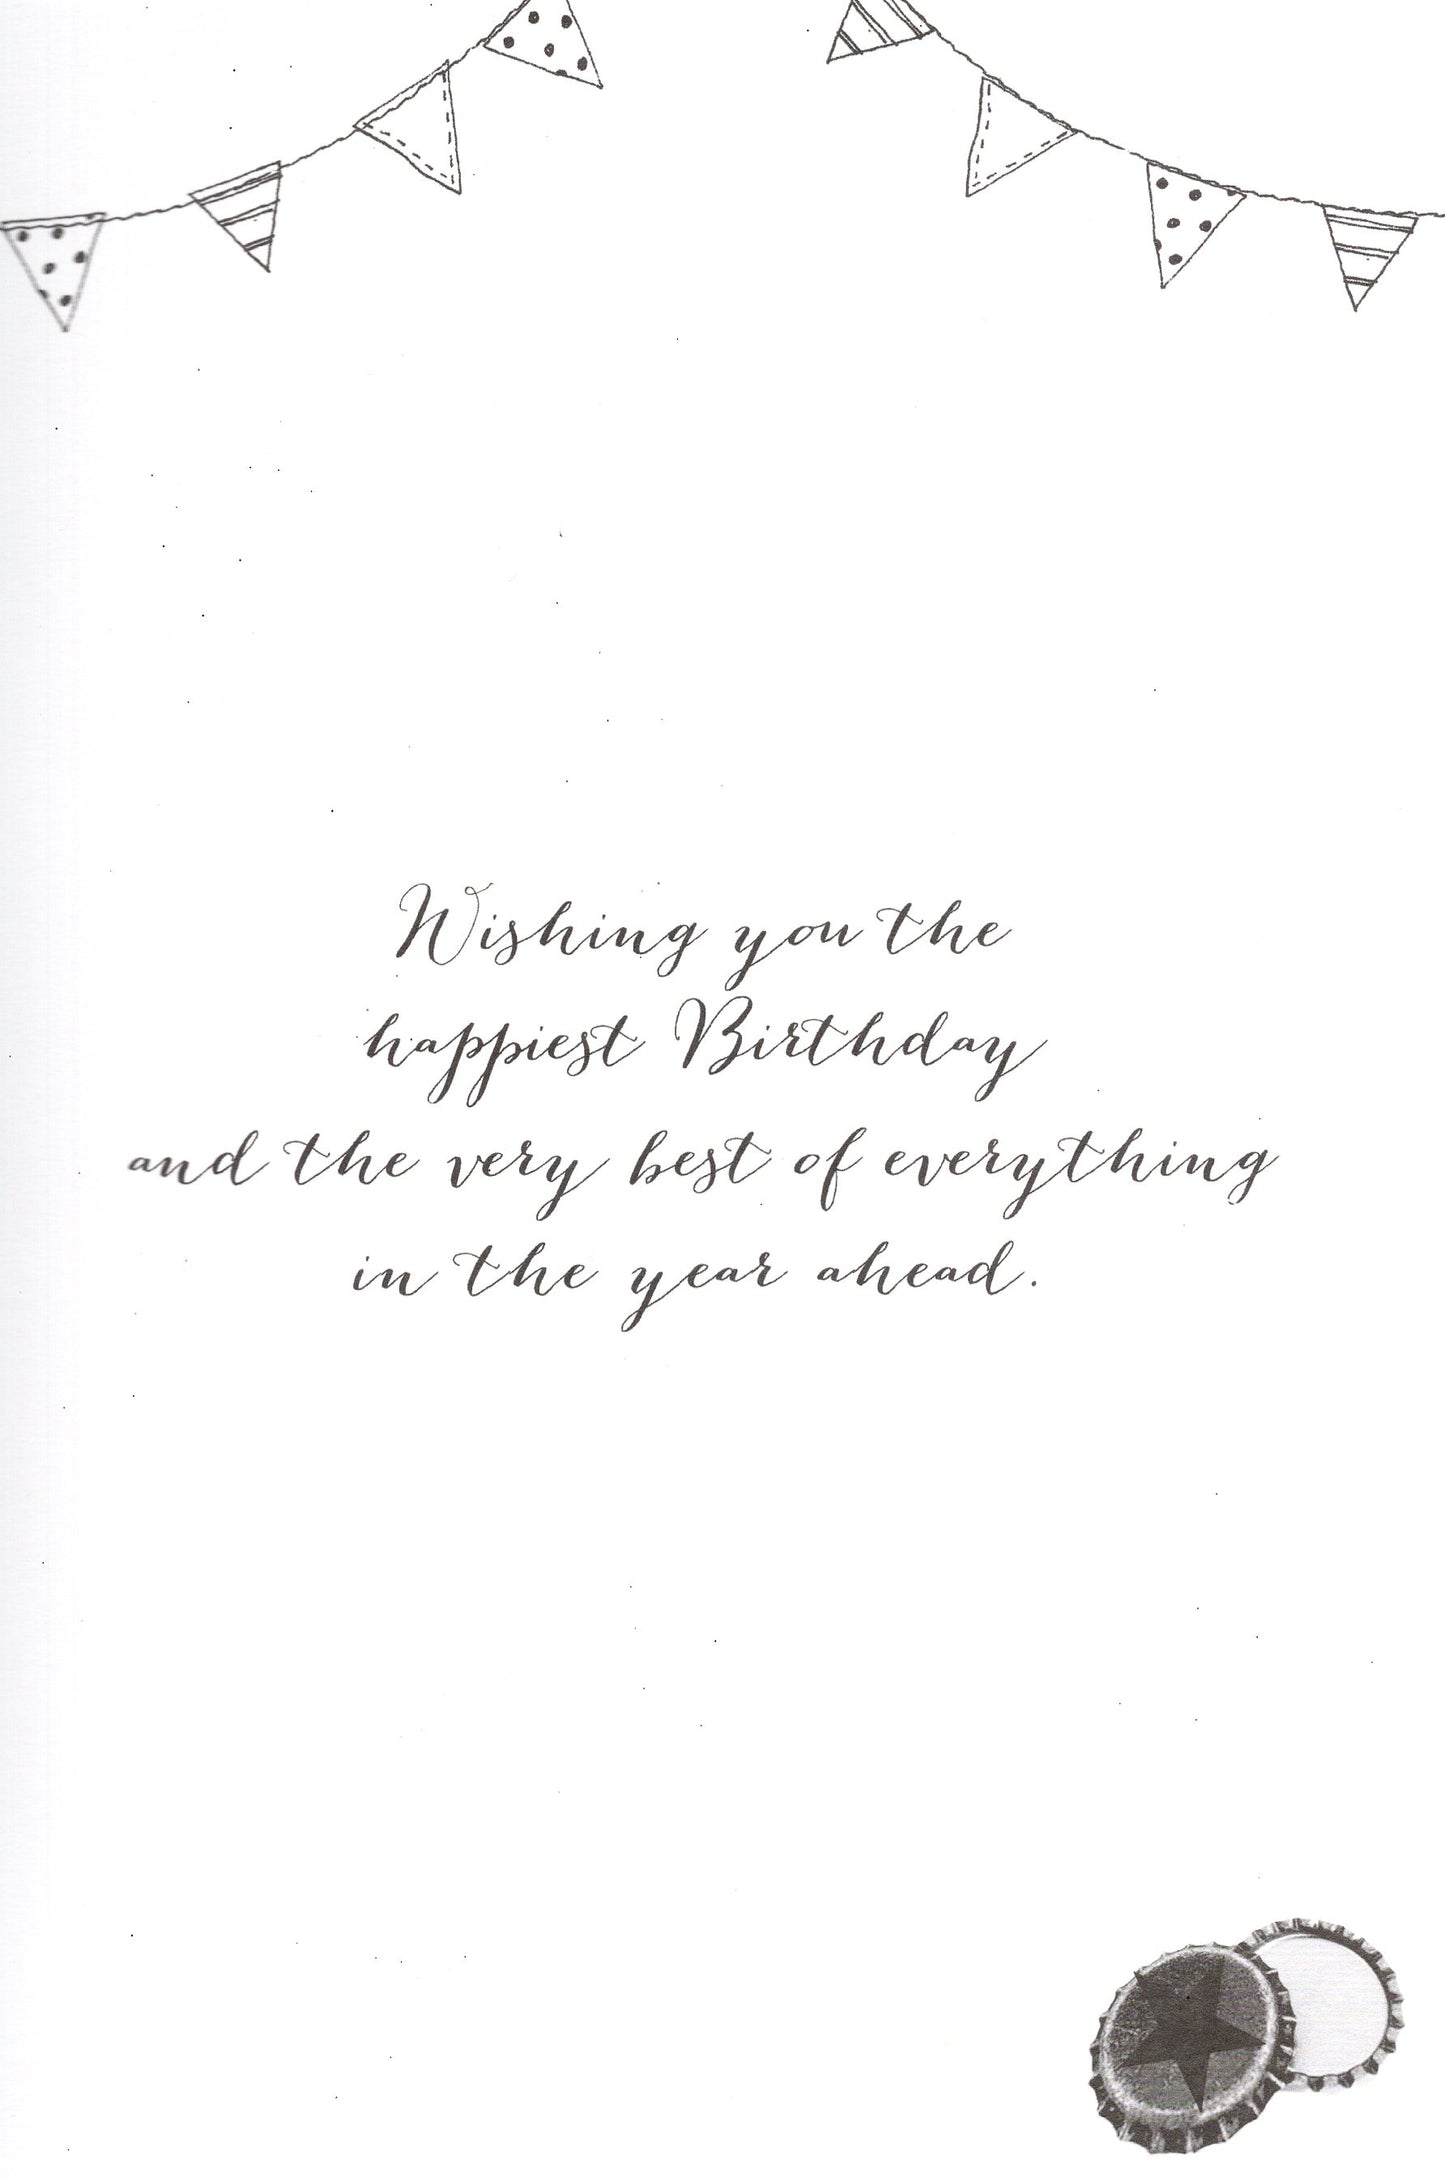 Wishing you the
happiest Birthday
and the very best of everything
in the year ahead.